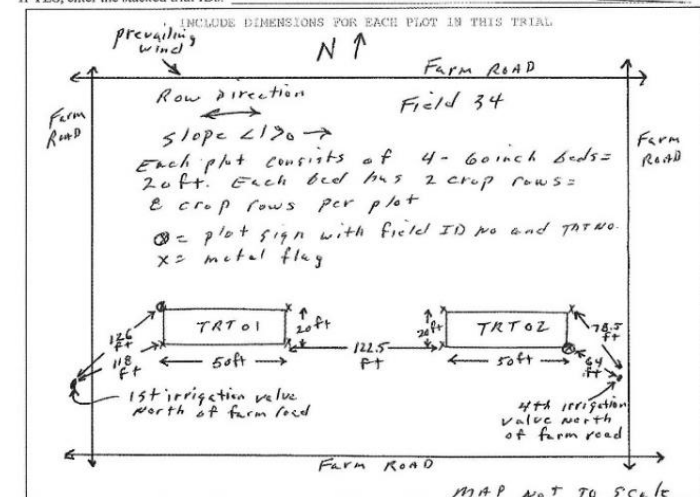 INCLUDE DIMENSIONS FOR EACH PLOT IN THIS TRIAL
prevailing
wind
N
Farm ROAD
Farm
ROAD
Row Direction
Field 34
Slope <1% →
Farm
ROAD
Each plot consists of 4 - 60 inch beds =
20 ft. Each bed has 2 crop rows =
8 crop rows per plot
⊗ = plot sign with field ID No and TRT NO.
X = metal flag
TRT 01
20 ft
20 ft
TRT 02
126
ft
118
ft
50 ft
122.5
FT
50 ft
78.5
ft
64
ft
1st irrigation valve
North of farm road
4th irrigation
valve North
of farm road
Farm ROAD
MAP NOT TO SCALE